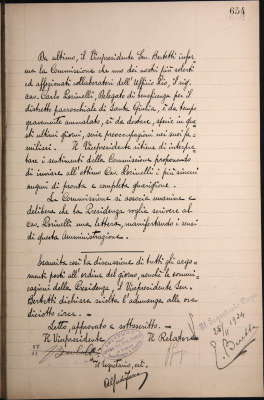 654
Da ultimo, il Vicepresidente Gen. Bertetti infor-
ma la Commissione che uno dei nostri più solerti
ed affezionati collaboratori dell'Ufficio Pio, il sig.
Cav. Carlo Lorinelli, Delegato di beneficenza per il
distretto parrocchiale di Santa Giulia, è da tempo
gravemente ammalato, sì da destare, specie in que-
sti ultimi giorni, serie preoccupazioni nei suoi fa-
miliari. Il Vicepresidente ritiene di interpre-
tare i sentimenti della Commissione proponendo
di inviare all'ottimo Cav. Lorinelli i più sinceri
auguri di pronta e completa guarigione.
La Commissione si associa unanime e
delibera che la Presidenza voglia scrivere al
Cav. Lorinelli una lettera, manifestando i sensi
di questa Amministrazione.
Esaurita così la discussione di tutti gli argo-
menti posti all'ordine del giorno, nonché le comuni-
cazioni della Presidenza, il Vicepresidente Gen.
Bertetti dichiara sciolta l'adunanza alle ore
diciotto circa.
Letto, approvato e sottoscritto.
Il Vicepresidente Il Relatore
Il Segretario Capo
Il Segretario,